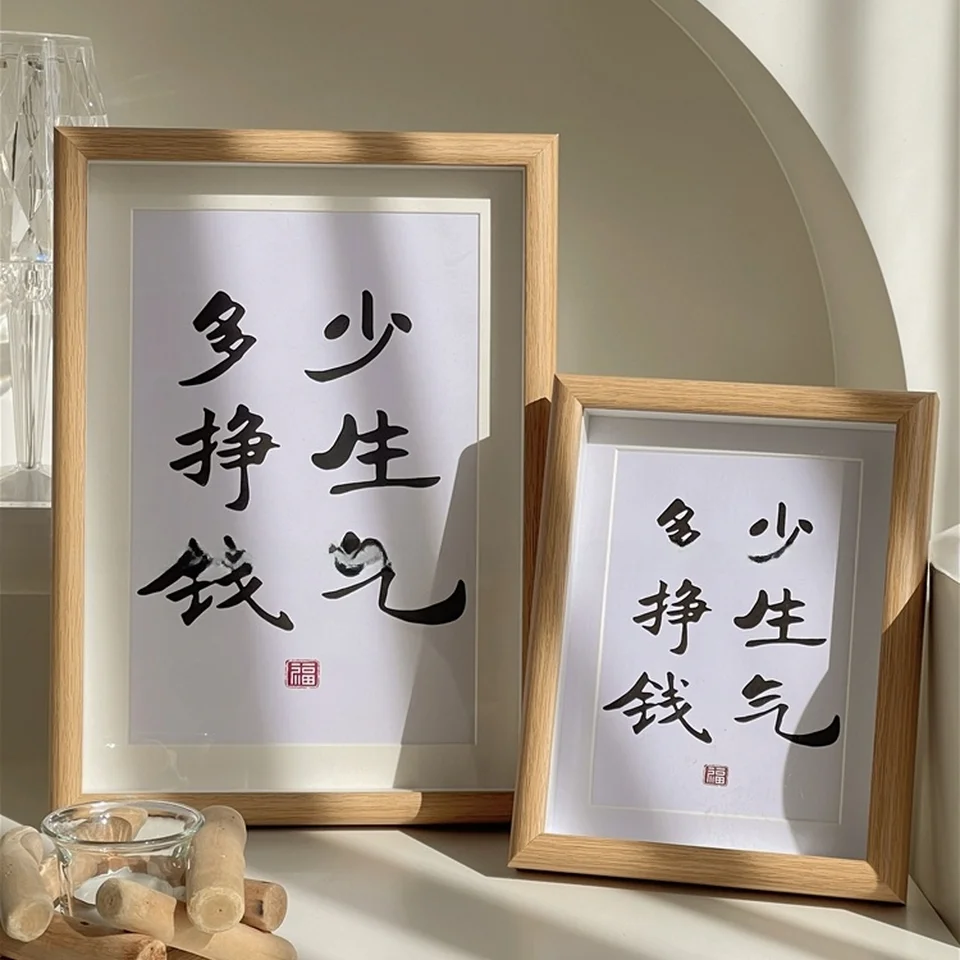 少生气
多挣钱
福
少生气
多挣钱
福